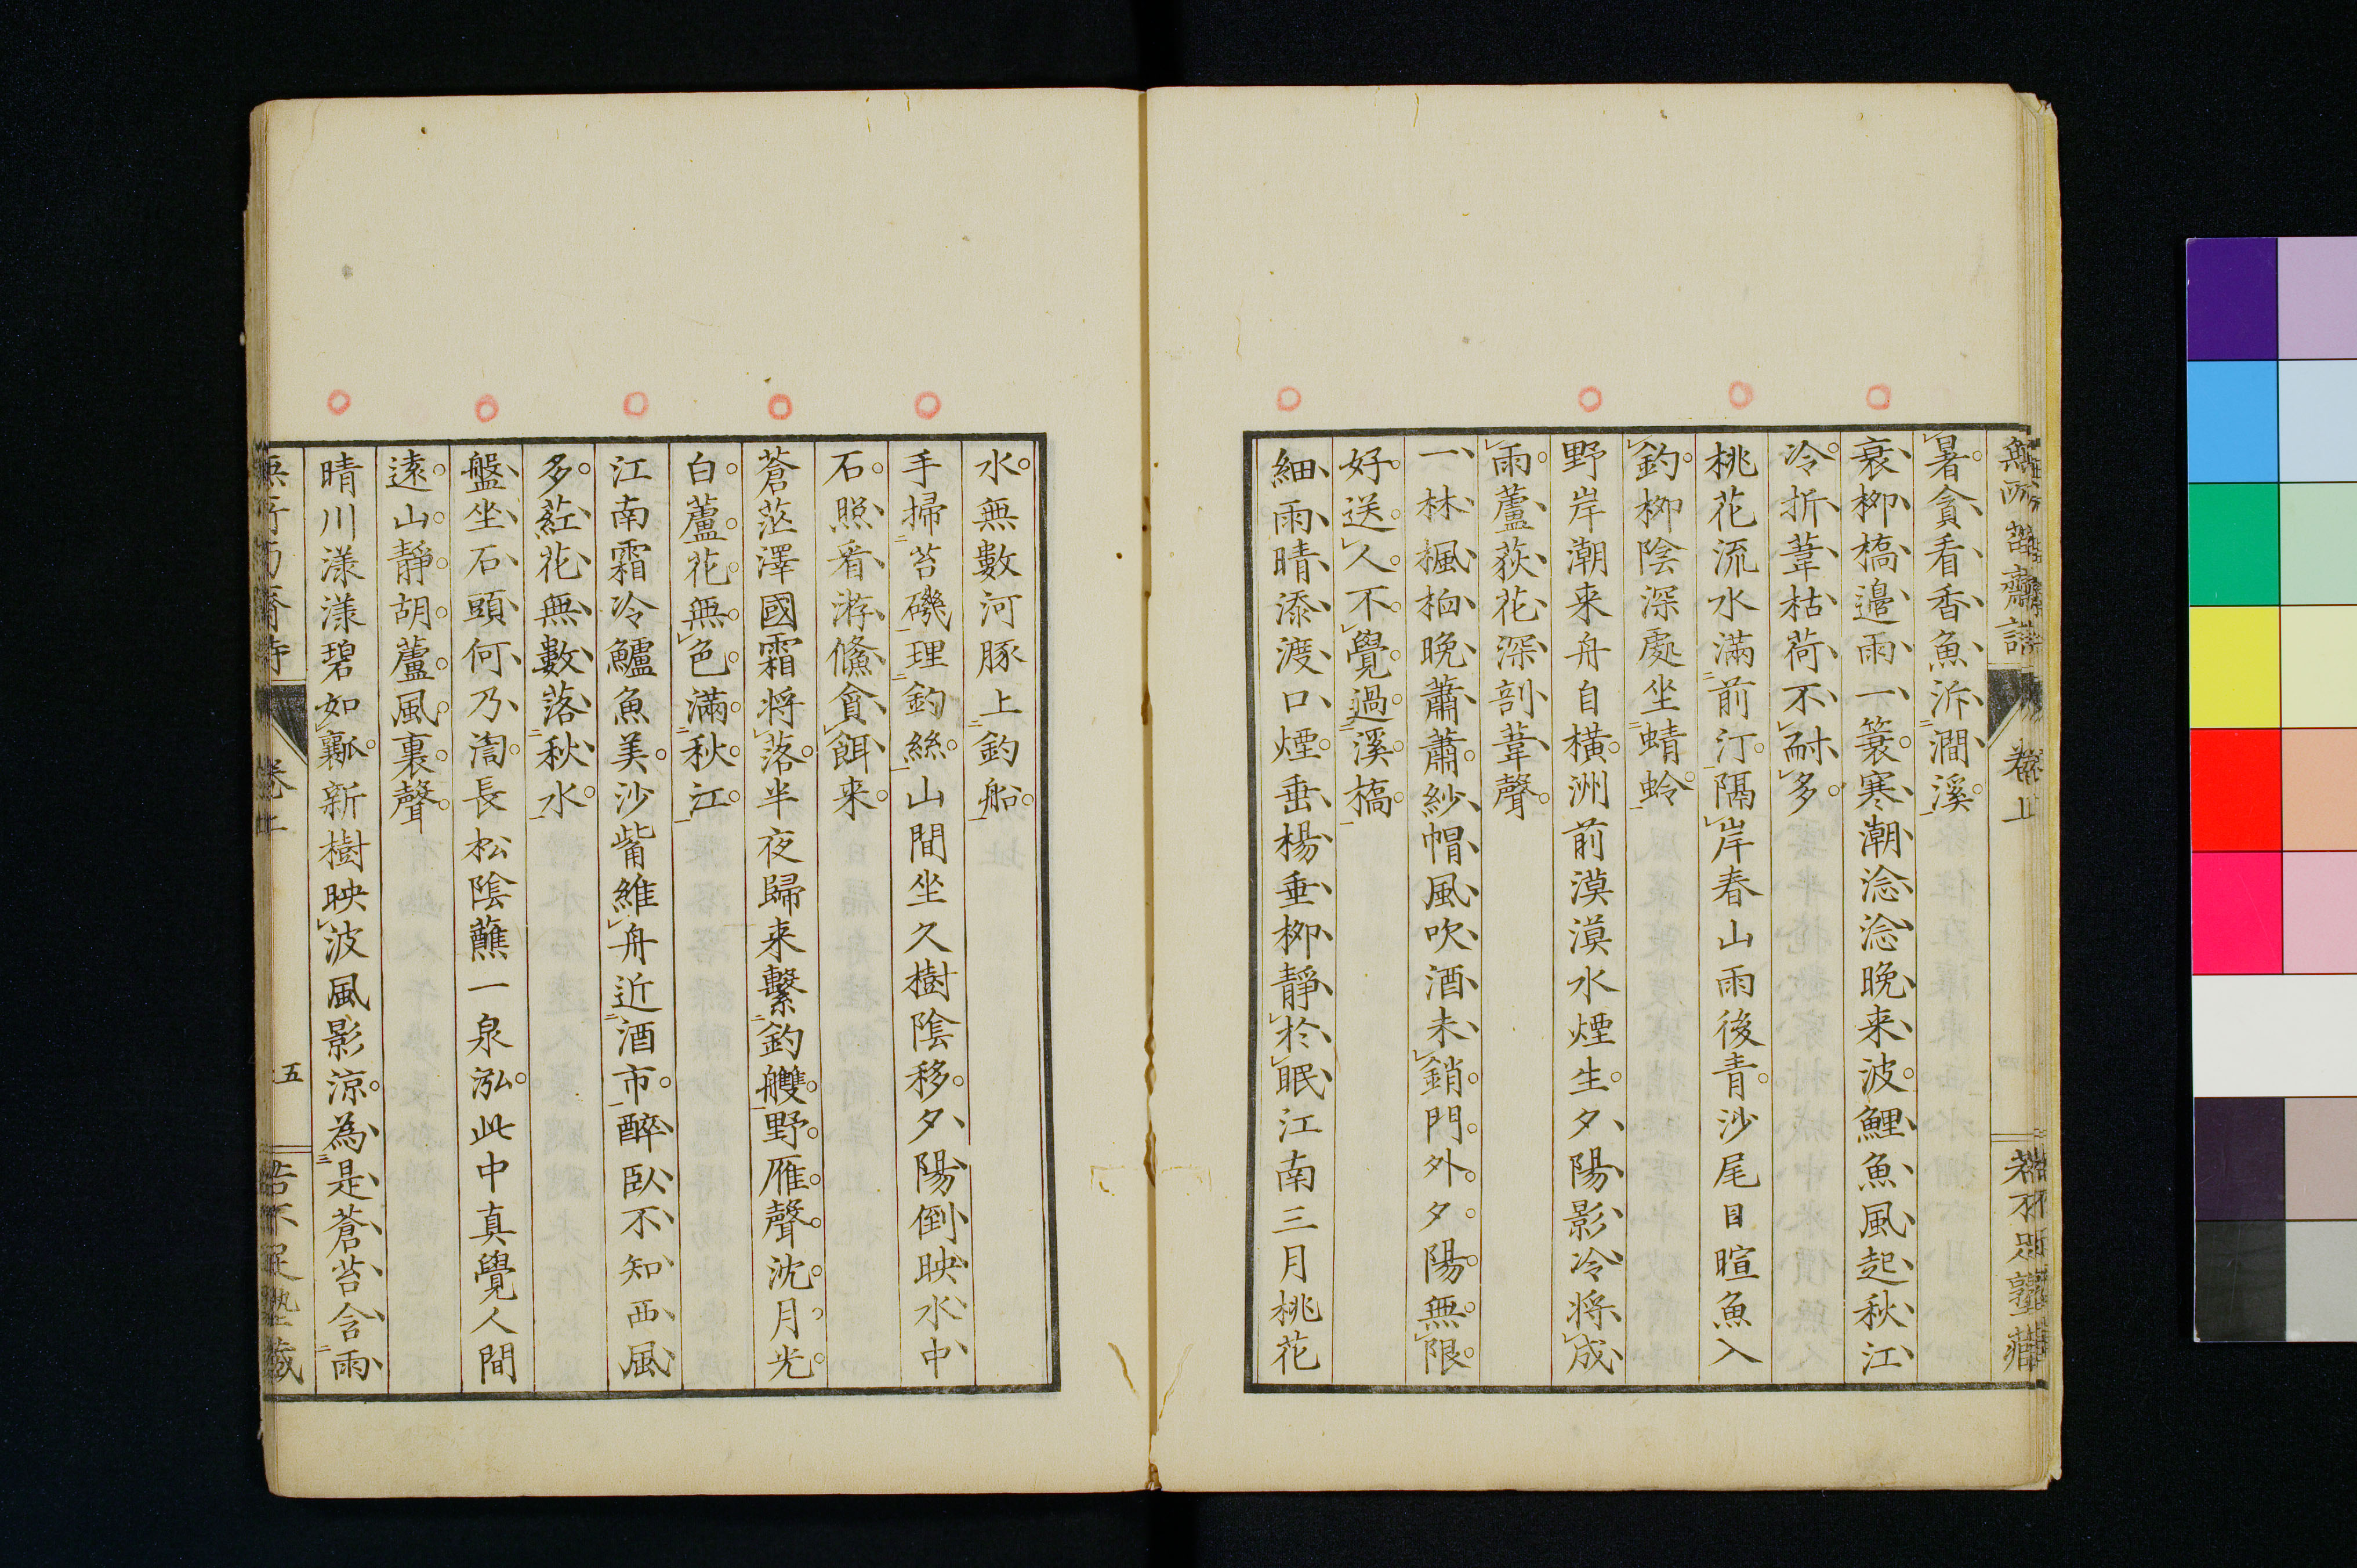 暑貪看香魚泝澗溪
衰柳橋邊雨一簑寒潮淰淰晩来波鯉魚風起秋江
冷折葦枯荷不耐多
桃花流水滿前汀隔岸春山雨後青沙尾日暄魚入
釣柳陰深處坐蜻蛉
野岸潮来舟自橫洲前漠漠水煙生夕陽影冷將成
雨蘆荻花深剖葦聲
一林楓桕晩蕭蕭紗帽風吹酒未銷門外夕陽無限
好送人不覺過溪橋
細雨晴添渡口煙垂楊垂柳靜於眠江南三月桃花
水無數河豚上釣船
手掃苔磯理釣絲山間坐久樹陰移夕陽倒映水中
石照看游鯈貪餌来
蒼茫澤國霜将落半夜歸来繫釣艭野雁聲沈月光
白蘆花無色滿秋江
江南霜冷鱸魚美沙觜維舟近酒市醉臥不知西風
多葒花無數落秋水
盤坐石頭何乃淘長松陰蘸一泉泓此中真覺人間
遠山靜胡蘆風裏聲
晴川漾漾碧如瓤新樹映波風影涼為是蒼苔含雨
卷上
五